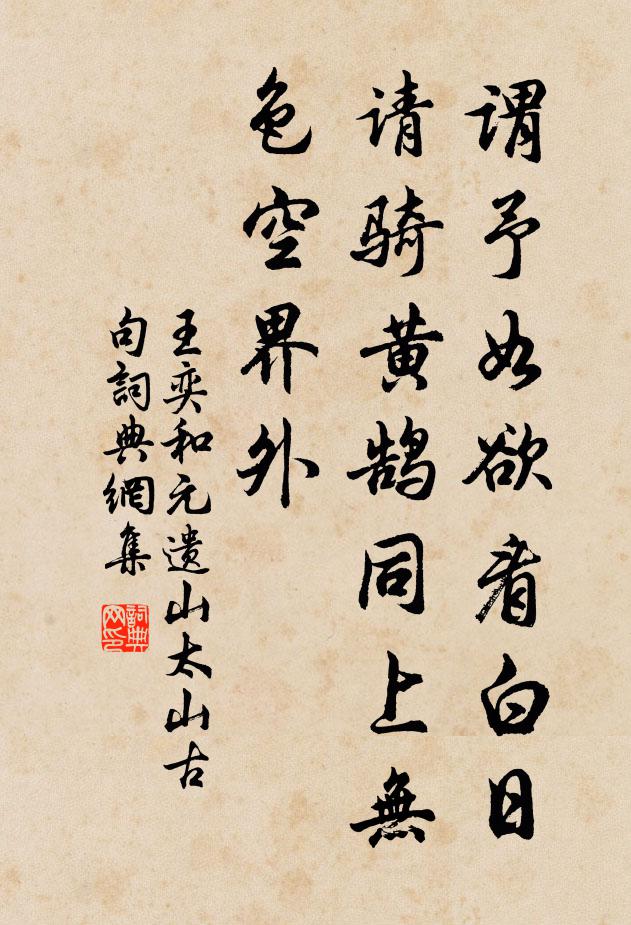 谓予如欲看白日
请骑黄鹄同上無
色空界外
王奕和元遗山太山古
句詞典網集
詞典网印